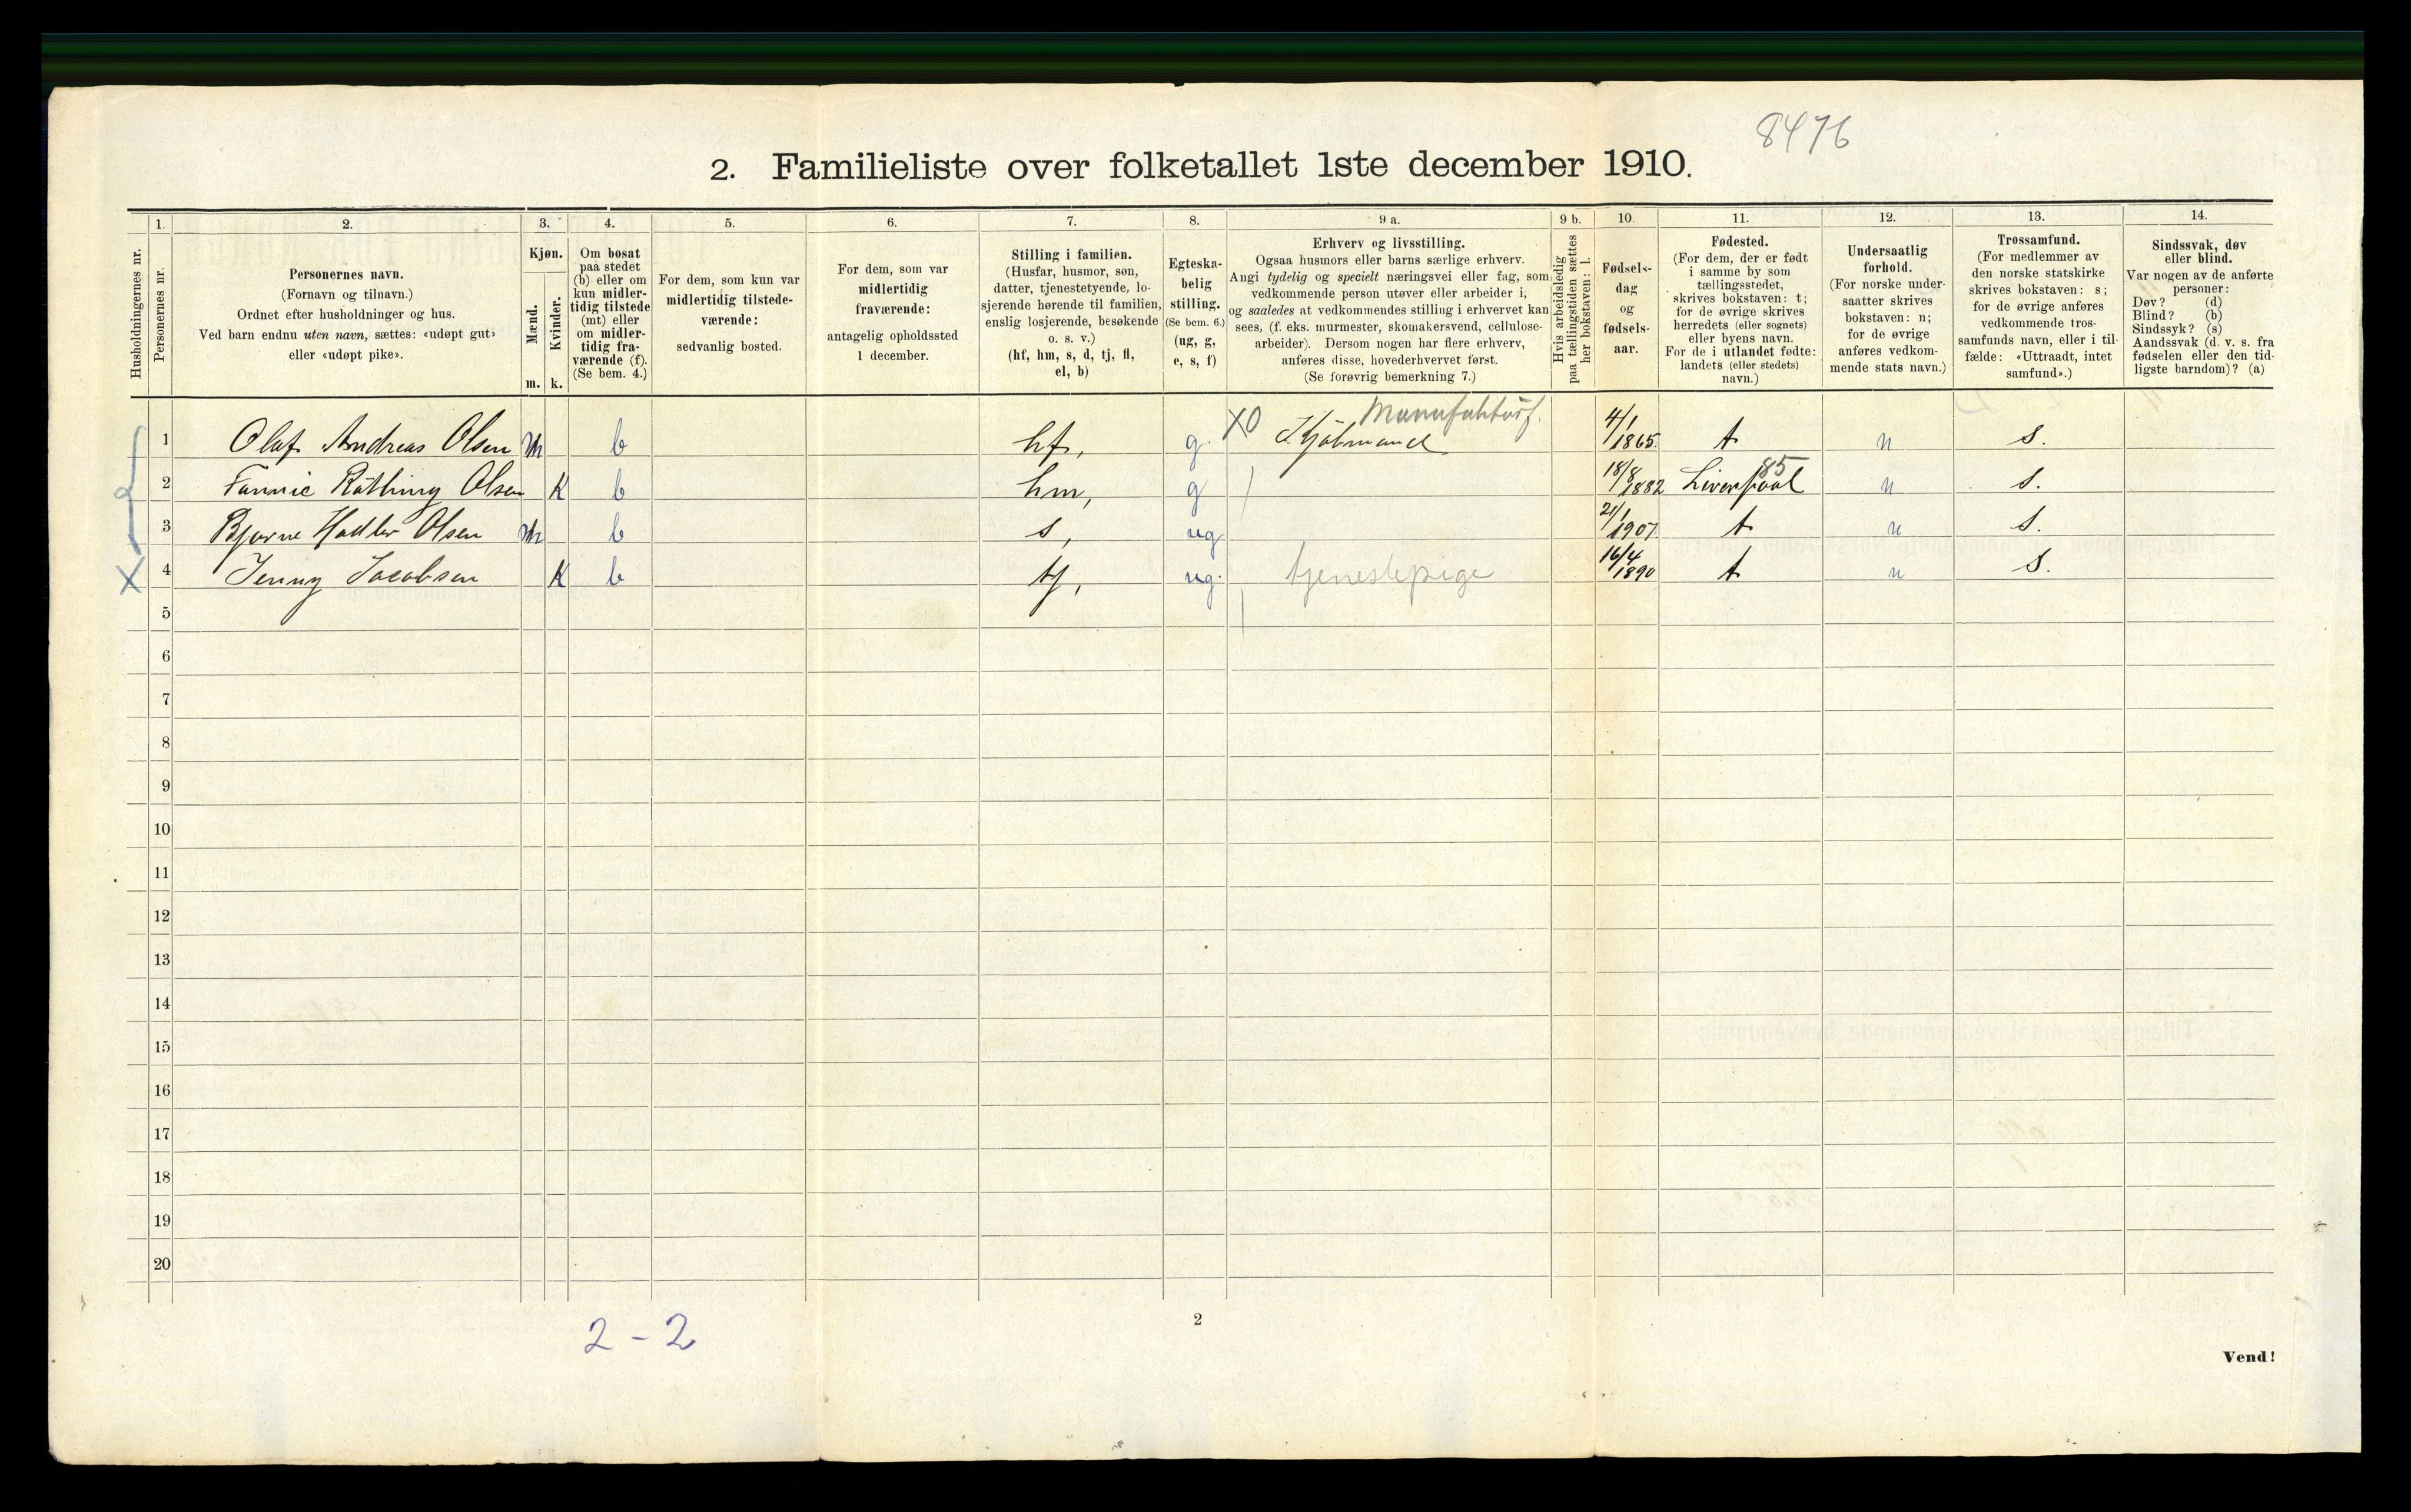 8476
2. Familieliste over folketallet 1ste december 1910.
Husholdningernes nr.
1.
Personernes nr.
2.
Personernes navn.
(Fornavn og tilnavn.)
Ordnet efter husholdninger og hus.
Ved barn endnu uten navn, sættes: «udøpt gut»
eller «udøpt pike».
3.
Kjøn.
Mænd.
m.
Kvinder.
k.
4.
Om bosat
paa stedet
(b) eller om
kun midler-
tidig tilstede
(mt) eller
om midler-
tidig fra-
værende (f).
(Se bem. 4.)
5.
For dem, som kun var
midlertidig tilstede-
værende:
sedvanlig bosted.
6.
For dem, som var
midlertidig
fraværende:
antagelig opholdssted
1 december.
7.
Stilling i familien.
(Husfar, husmor, søn,
datter, tjenestetyende, lo-
sjerende hørende til familien,
enslig losjerende, besøkende
o. s. v.)
(hf, hm, s, d, tj, fl,
el, b)
8.
Egteska-
belig
stilling.
(Se bem. 6.)
(ug, g,
e, s, f)
9 a.
Erhverv og livsstilling.
Ogsaa husmors eller barns særlige erhverv.
Angi tydelig og specielt næringsvei eller fag, som
vedkommende person utøver eller arbeider i,
og saaledes at vedkommendes stilling i erhvervet kan
sees, (f. eks. murmester, skomakersvend, cellulose-
arbeider). Dersom nogen har flere erhverv,
anføres disse, hovederhvervet først.
(Se forøvrig bemerkning 7.)
9 b.
Hvis arbeidsledig
paa tællingstiden sættes
her bokstaven: l.
10.
Fødsels-
dag
og
fødsels-
aar.
11.
Fødested.
(For dem, der er født
i samme by som
tællingsstedet,
skrives bokstaven: t;
for de øvrige skrives
herredets (eller sognets)
eller byens navn.
For de i utlandet fødte:
landets (eller stedets)
navn.)
12.
Undersaatlig
forhold.
(For norske under-
saatter skrives
bokstaven: n;
for de øvrige
anføres vedkom-
mende stats navn.)
13.
Trossamfund.
(For medlemmer av
den norske statskirke
skrives bokstaven: s;
for de øvrige anføres
vedkommende tros-
samfunds navn, eller i til-
fælde: «Uttraadt, intet
samfund».)
14.
Sindssvak, døv
eller blind.
Var nogen av de anførte
personer:
Døv? (d)
Blind? (b)
Sindssyk? (s)
Aandssvak (d. v. s. fra
fødselen eller den tid-
ligste barndom)? (a)
1 Olaf Andreas Olsen m b hf, g. X0 Kjøbmand Manufaktur f. 4/1 1865. t n s.
2 Fannie Olsen K b hm, g 18/8 1882 Liverpool 85 n s.
3 Bjarne Olsen m b s, ug 21/1 1907. t n s.
4 Jenny Jacobsen K b tj, ug. tjenestepige 16/4 1890 t n s.
5
6
7
8
9
10
11
12
13
14
15
16
17
18
19
20
2 - 2
2
Vend!